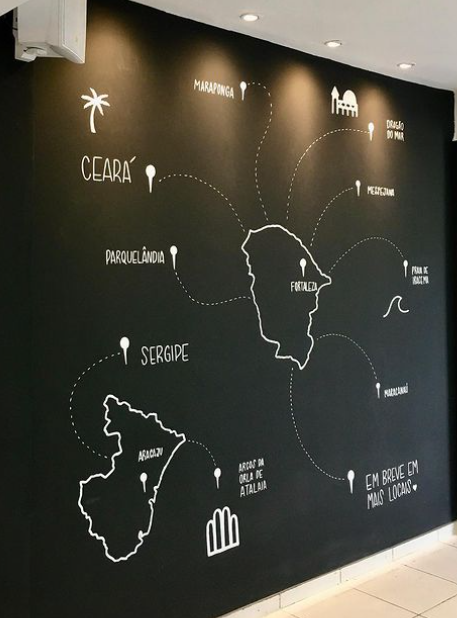 MARAPONGA
DRAGÃO
DO MAR
CEARÁ
MESSEJANA
PARQUELÂNDIA
PRAIA DE
IRACEMA
FORTALEZA
SERGIPE
MARACANAÚ
ARACAJU
ARCOS DA
ORLA DE
ATALAIA
EM BREVE EM
MAIS LOCAIS